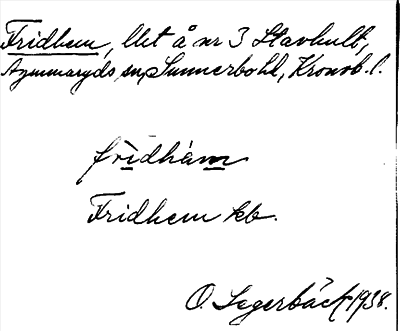 Fridhem, lht å nr 3 Stavhult,
Agunnaryds sn, Sunnerbo hd, Kronob. l.
fridhäm
Fridhem kb.
O. Segerbäck 1938.